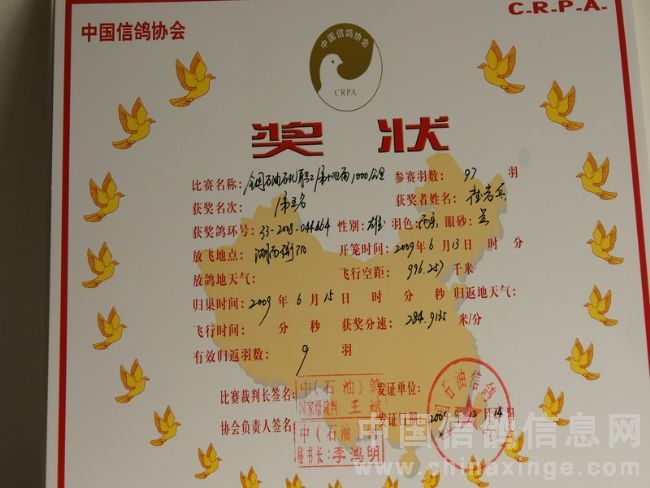 C-R-P-A-
中国信鸽协会
中国信鸽协会
CRPA
奖 状
比赛名称：全国石油石化职工第十四届1000公里 参赛羽数：97 羽
获奖名次：第三名 获奖者姓名：
获奖鸽环号：33-2008-044464 性别：雄 羽色：雨点 眼砂：
放飞地点：湖南衡阳 开笼时间：2009年6月13日 时 分
放鸽地天气： 飞行空距：996.257 千米
归巢时间：2009年6月15日 时 分 秒 归返地天气：
飞行时间： 分 秒 获奖分速：284.9135 米/分
有效归返羽数：9 羽
比赛裁判长签名： 发证单位：
中(石油)鸽
国家级裁判：王斌
协会负责人签名： 发证日期：2009年12月14日
中(石油
秘书长：李鸿明
石油信鸽
中国信鸽信息网
www.chinaxinge.com